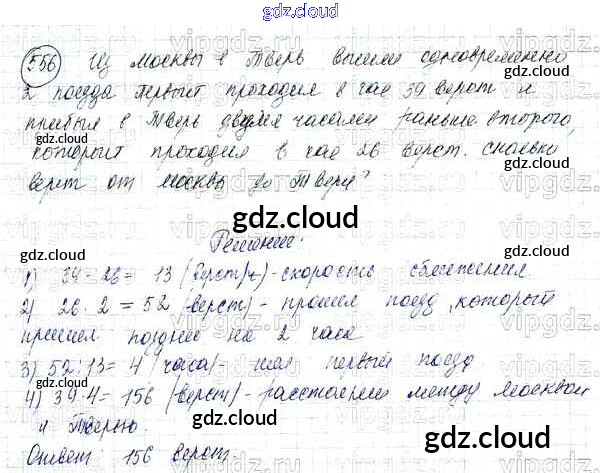 gdz.cloud
556 Из Москвы в Тверь вышли одновременно
2 поезда первый проходил в час 39 верст и
прибыл в Тверь двумя часами раньше второго,
который проходил в час 26 верст. Сколько
верст от Москвы до Твери?
gdz.cloud
Решение.
1) 39-26= 13 (верст/ч)-скорость сближения
gdz.cloud
2) 26·2=52 (верст)- прошел поезд, который
пришел позднее на 2 часа
gdz.cloud
3) 52:13= 4 (часа)- шел первый поезд
4) 39·4=156 (верст)-расстояние между Москвой
и Тверью.
gdz.cloud
Ответ: 156 верст.